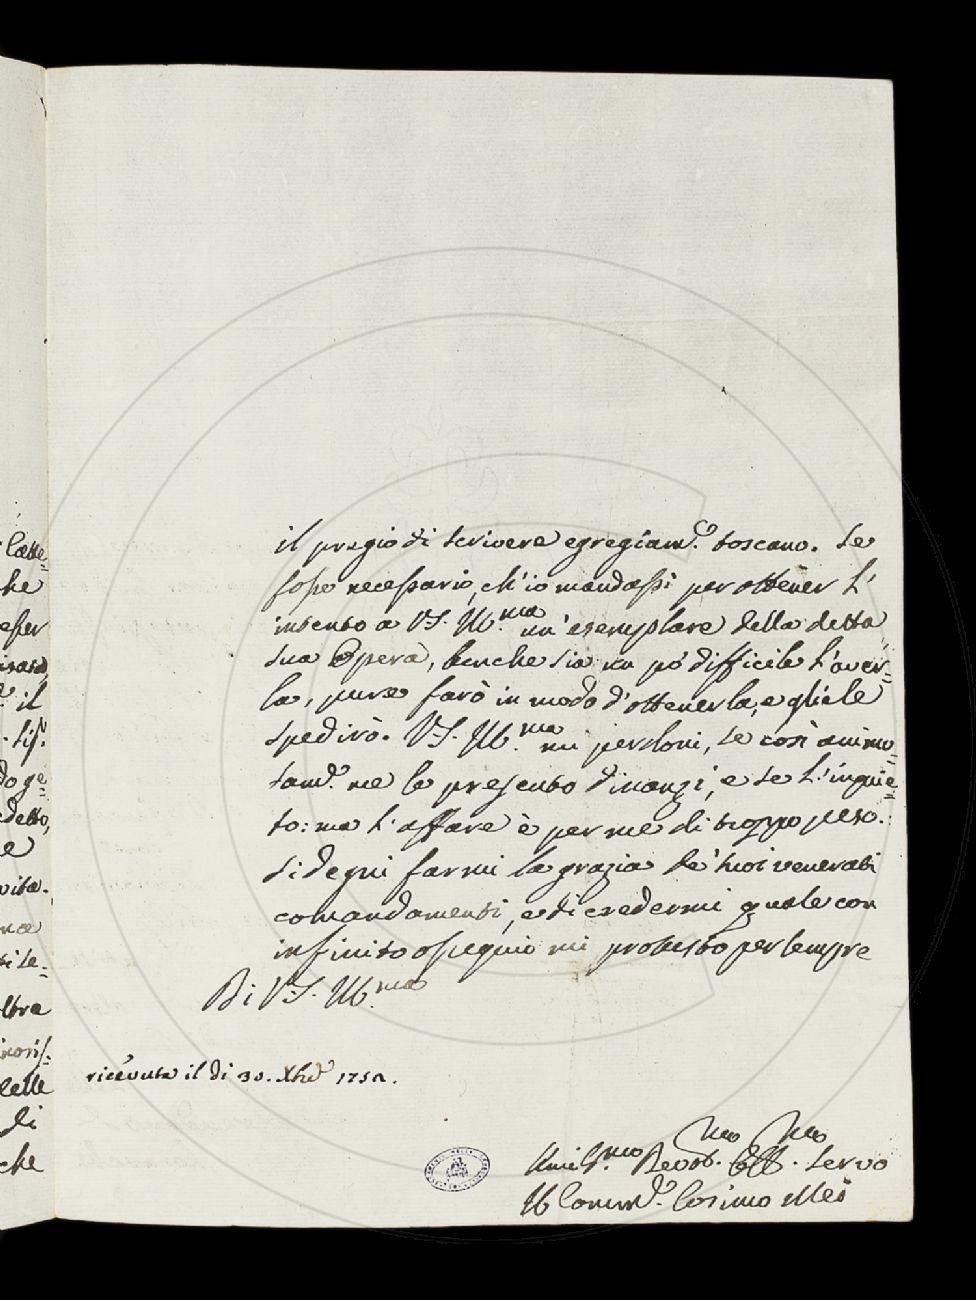 il pregio di scrivere egregiam.e toscano. Se
fosse necessario, ch'io mandassi per ottener l'
intento a V.S. Ill.ma un'esemplare della detta
sua Opera, benche sia un pò difficile l'aver=
la, pure farò in modo d'ottenerla, e gliele
spedirò. V.S. Ill.ma mi perdoni, se così animo
sam.e me le presento dinanzi, e se l'inquie=
to: ma l'affare è per me di troppo peso.
Si degni farmi la grazia de' suoi venerati
comandamenti, e di credermi quale con
infinito ossequio mi protesto per sempre
Di V.S. Ill.ma
ricevuta il dì 30. Xbre 175
Umil.mo Devot.mo Obb.mo Servo
Il Comm.e Cosimo Mei
che
il
detto,
e
vita.
na
altra
delle
di
che